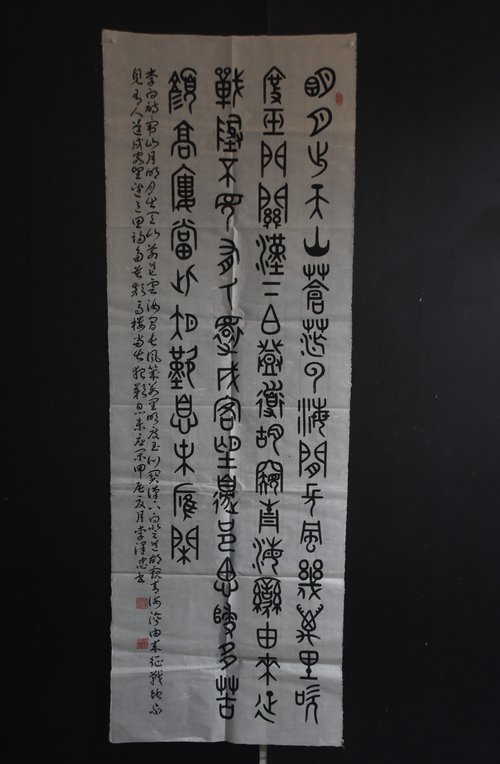 明月出天山蒼茫雲海間長風幾萬里吹
度玉門關漢下白登道胡窺青海灣由來征
戰地不見有人還戍客望邊邑思歸多苦
顏高樓當此夜歎息未應閑
李白詩關山月明月出天山蒼茫雲海間長風幾萬里吹度玉門關漢下白登道胡窺青海灣由來征戰地不
見有人還戍客望邊邑思歸多苦顏高樓當此夜歎息未應閑甲辰夏月李澤忠書